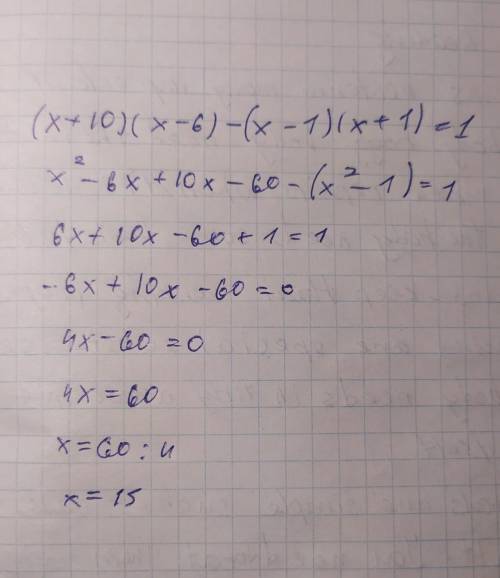 (x+10)(x-6)-(x-1)(x+1)=1
x²-6x+10x-60-(x²-1)=1
6x+10x-60+1=1
-6x+10x-60=0
4x-60=0
4x=60
x=60:4
x=15